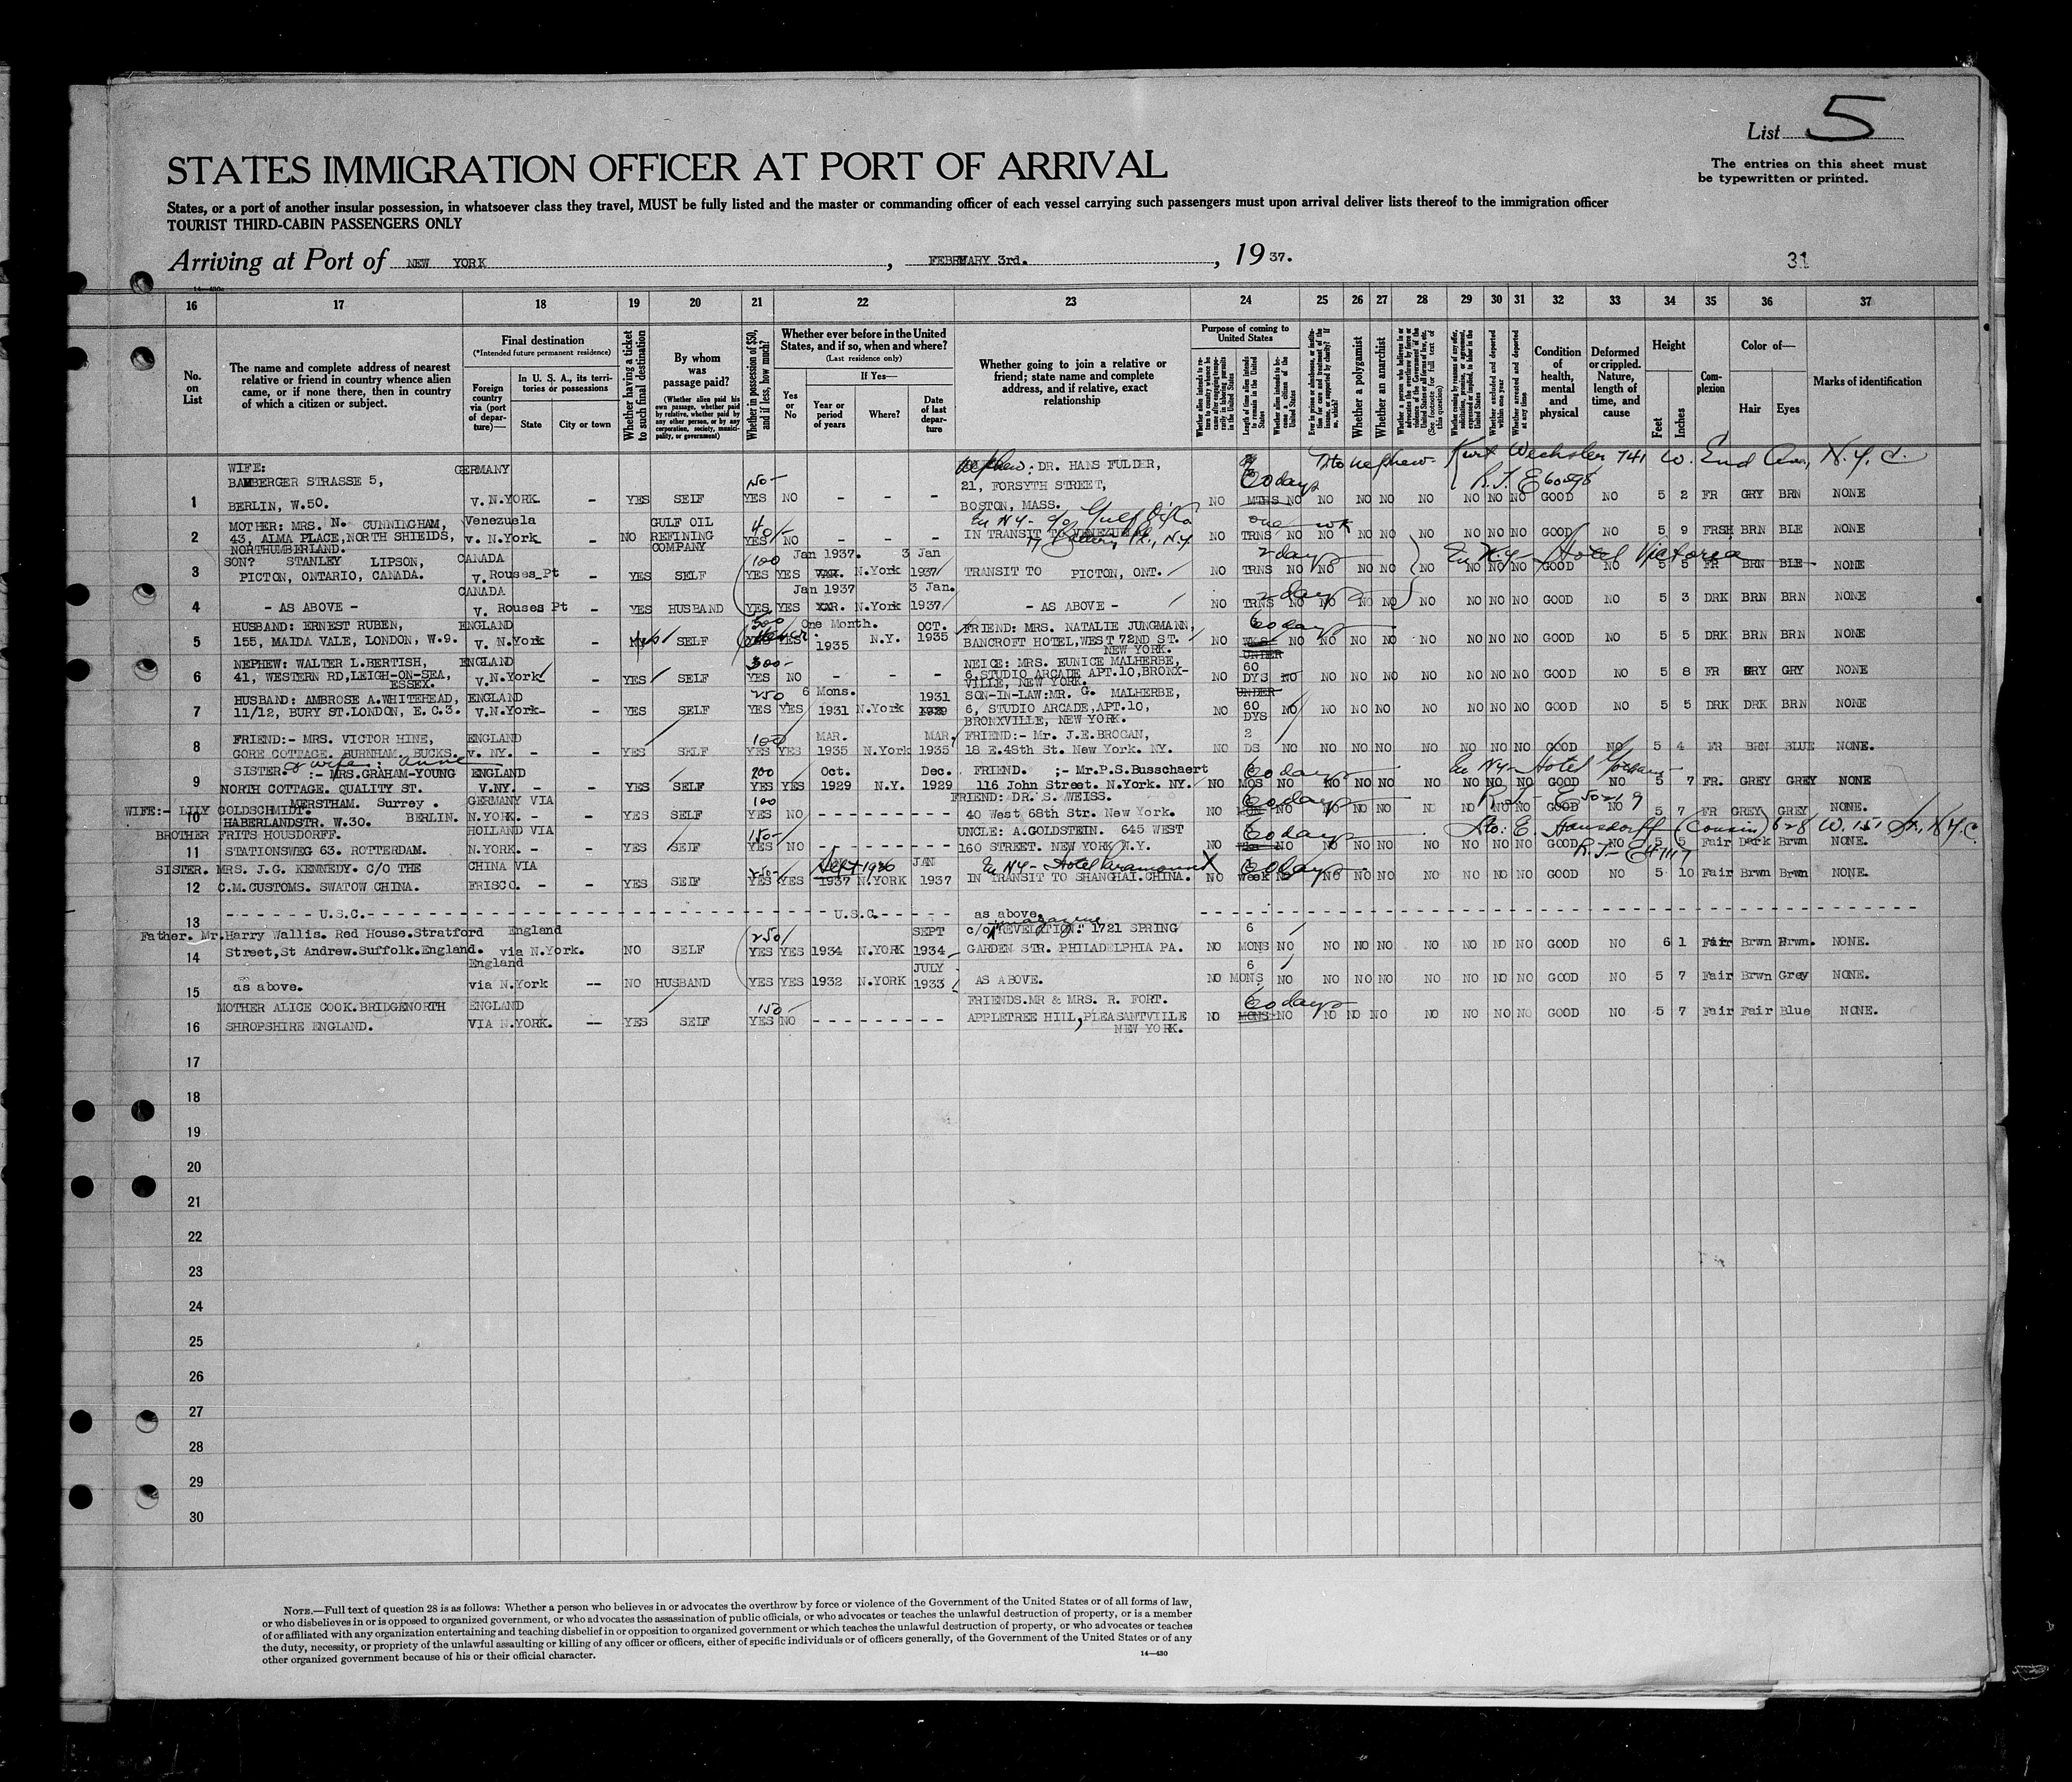 List 5
The entries on this sheet must
be typewritten or printed.
STATES IMMIGRATION OFFICER AT PORT OF ARRIVAL
States, or a port of another insular possession, in whatsoever class they travel, MUST be fully listed and the master or commanding officer of each vessel carrying such passengers must upon arrival deliver lists thereof to the immigration officer
TOURIST THIRD-CABIN PASSENGERS ONLY
Arriving at Port of NEW YORK, FEBRUARY 3rd., 1937.
31
16 17 18 19 20 21 22 23 24 25 26 27 28 29 30 31 32 33 34 35 36 37
No. on List
The name and complete address of nearest relative or friend in country whence alien came, or if none there, then in country of which a citizen or subject.
Final destination
(*Intended future permanent residence)
Foreign country via (port of departure)—
In U. S. A., its territories or possessions
State
City or town
Whether having a ticket to such final destination
By whom was passage paid?
(Whether alien paid his own passage, whether paid by relative, whether paid by any other person, or by any corporation, society, municipality, or government)
Whether in possession of $50, and if less, how much?
Whether ever before in the United States, and if so, when and where?
(Last residence only)
Yes or No
If Yes—
Year or period of years
Where?
Date of last departure
Whether going to join a relative or friend; state name and complete address, and if relative, exact relationship
Purpose of coming to United States
Length of time alien intends to remain in the United States
Whether alien intends to become a citizen of the United States
Whether a polygamist
Whether an anarchist
Whether excluded and deported within one year
Whether arrested and deported at any time
Condition of health, mental and physical
Deformed or crippled. Nature, length of time, and cause
Height
Feet
Inches
Complexion
Color of—
Hair
Eyes
Marks of identification
WIFE: GERMANY Nephew: DR. HANS FULDER, to nephew Kurt Wechsler 741 W. End Ave, N.Y.C.
BAMBERGER STRASSE 5, 50- 21, FORSYTH STREET, 60 days
1 BERLIN, W.50. v. N.YORK - YES SELF YES NO - - - BOSTON, MASS. NO MTHS NO NO NO NO NO NO NO NO GOOD NO 5 2 FR GRY BRN NONE
MOTHER: MRS. N. CUNNINGHAM, Venezuela GULF OIL 40/- one wk
2 43, ALMA PLACE, NORTH SHIELDS, v. N.York - NO REFINING YES NO - - - IN TRANSIT TO NO TRNS NO NO NO NO NO NO NO NO GOOD NO 5 9 FRSH BRN BLE NONE
NORTHUMBERLAND. COMPANY
SON? STANLEY LIPSON, CANADA 100 Jan 1937. 3 Jan 2 days In N.Y- Hotel Victoria
3 PICTON, ONTARIO, CANADA. v. Rouses Pt - YES SELF YES YES N.York 1937 TRANSIT TO PICTON, ONT. NO TRNS NO NO NO NO NO NO NO NO GOOD NO 5 5 FR BRN BLE NONE
CANADA Jan 1937 3 Jan. 2 days
4 - AS ABOVE - v. Rouses Pt - YES HUSBAND YES YES N.York 1937 - AS ABOVE - NO TRNS NO NO NO NO NO NO NO NO GOOD NO 5 3 DRK BRN BRN NONE
HUSBAND: ERNEST RUBEN, ENGLAND 500 One Month. OCT. FRIEND: MRS. NATALIE JUNGMANN, 60 days
5 155, MAIDA VALE, LONDON, W.9. v. N.York - SELF YES 1935 N.Y. 1935 BANCROFT HOTEL, WEST 72ND ST. NO WKS NO NO NO NO NO NO NO NO GOOD NO 5 5 DRK BRN BRN NONE
NEW YORK. UNDER
NEPHEW: WALTER L. BERTISH, ENGLAND 300- NEICE: MRS. EUNICE MALHERBE, 60
6 41, WESTERN RD, LEIGH-ON-SEA, v. N.York - YES SELF YES NO - - - 6, STUDIO ARCADE APT.10, BRONX- NO DYS NO NO NO NO NO NO NO NO GOOD NO 5 8 FR GRY GRY NONE
ESSEX. VILLE, NEW YORK. UNDER
HUSBAND: AMBROSE A. WHITEHEAD, ENGLAND 250 6 Mons. 1931 SON-IN-LAW: MR. G. MALHERBE, 60
7 11/12, BURY ST. LONDON, E.C.3. v. N.York - YES SELF YES YES 1931 N.York 1929 6, STUDIO ARCADE, APT.10, NO DYS NO NO NO NO NO NO NO NO GOOD NO 5 5 DRK DRK BRN NONE
BRONXVILLE, NEW YORK.
FRIEND:- MRS. VICTOR HINE, ENGLAND 100 MAR. MAR. FRIEND:- Mr. J.E. BROGAN, 2
8 GORE COTTAGE. BURNHAM. BUCKS. v. NY. - - YES SELF YES YES 1935 N.York 1935 18 E.48th St. New York. NY. NO DS NO NO NO NO NO NO NO NO GOOD NO 5 4 BRN BLUE NONE.
& wife: Anne
SISTER. :- MRS. GRAHAM-YOUNG ENGLAND 200 Oct. Dec. FRIEND. ;- Mr.P.S.Busschaert 60 days In NY- Hotel
9 NORTH COTTAGE. QUALITY ST. V.NY. - - YES SELF YES YES 1929 N.Y. 1929 116 John Street. N.York. NY. NO MOS NO NO NO NO NO NO NO NO GOOD NO 5 7 FR. GREY GREY NONE
MERSTHAM. Surrey.
WIFE:- LILY GOLDSCHMIDT. GERMANY VIA 100 FRIEND: DR. S. WEISS. 60 days
10 HABERLANDSTR. W.30. BERLIN. N.YORK. - - YES SELF YES NO - - - 40 West 68th Str. New York. NO NO NO NO NO NO NO NO NO GOOD NO 5 7 FR GREY GREY NONE.
BROTHER FRITS HOUSDORFF. HOLLAND VIA 150- UNCLE: A. GOLDSTEIN. 645 WEST 60 days to: E. Hausdorff (Cousin) 628 W. 151 St., N.Y.C
11 STATIONSWEG 63. ROTTERDAM. N.YORK. - - YES SELF YES NO - - - 160 STREET. NEW YORK N.Y. NO NO NO NO NO NO NO NO NO GOOD NO 5 5 Fair Dark Brwn NONE.
SISTER. MRS. J.G. KENNEDY. C/O THE CHINA VIA 250- Sept 1936 JAN In NY- Hotel Paramount 60 days
12 C.M. CUSTOMS. SWATOW CHINA. FRISCO. - - YES SELF YES YES 1937 N.YORK 1937 IN TRANSIT TO SHANGHAI. CHINA. NO week NO NO NO NO NO NO NO NO GOOD NO 5 10 Fair Brwn Brwn NONE.
13 - - - U.S.C. - - - U.S.C. - - - as above.
Father. Mr. Harry Wallis. Red House. Stratford England 250/ SEPT c/o "REVELATION" magazine 1721 SPRING 6
14 Street, St Andrew. Suffolk. England. via N.York. NO SELF YES YES 1934 N.YORK 1934 GARDEN STR. PHILADELPHIA PA. NO MONS NO NO NO NO NO NO NO NO GOOD NO 6 1 Fair Brwn Brwn. NONE.
England JULY 6
15 as above. via N.York -- NO HUSBAND YES YES 1932 N.YORK 1933 AS ABOVE. NO MONS NO NO NO NO NO NO NO NO GOOD NO 5 7 Fair Brwn Grey NONE.
MOTHER ALICE COOK. BRIDGENORTH ENGLAND 150- FRIENDS. MR & MRS. R. FORT. 60 days
16 SHROPSHIRE ENGLAND. VIA N.YORK. -- YES SELF YES NO - - - APPLETREE HILL, PLEASANTVILLE NO MONS NO NO NO NO NO NO NO NO GOOD NO 5 7 Fair Fair Blue NONE.
NEW YORK.
17
18
19
20
21
22
23
24
25
26
27
28
29
30
NOTE.—Full text of question 28 is as follows: Whether a person who believes in or advocates the overthrow by force or violence of the Government of the United States or of all forms of law,
or who disbelieves in or is opposed to organized government, or who advocates the assassination of public officials, or who advocates or teaches the unlawful destruction of property, or is a member
of or affiliated with any organization entertaining and teaching disbelief in or opposition to organized government or which teaches the unlawful destruction of property, or who advocates or teaches
the duty, necessity, or propriety of the unlawful assaulting or killing of any officer or officers, either of specific individuals or of officers generally, of the Government of the United States or of any
other organized government because of his or their official character.
14—430